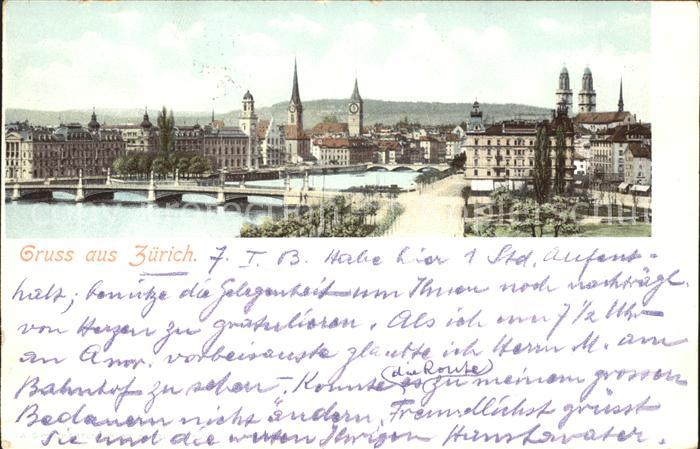 Gruss aus Zürich. 7. I. 03. Habe hier 1 Std. Aufent-
halt; benütze die Gelegenheit um Ihnen noch nachträgl.
von Herzen zu gratulieren. Als ich um 7 1/2 Uhr
an vorbeisauste glaubte ich Herrn M. am
Bahnhof zu sehen - Konnte die Route zu meinem grossen
Bedauern nicht ändern. Freundlichst grüsst
Sie und die werten Ihrigen